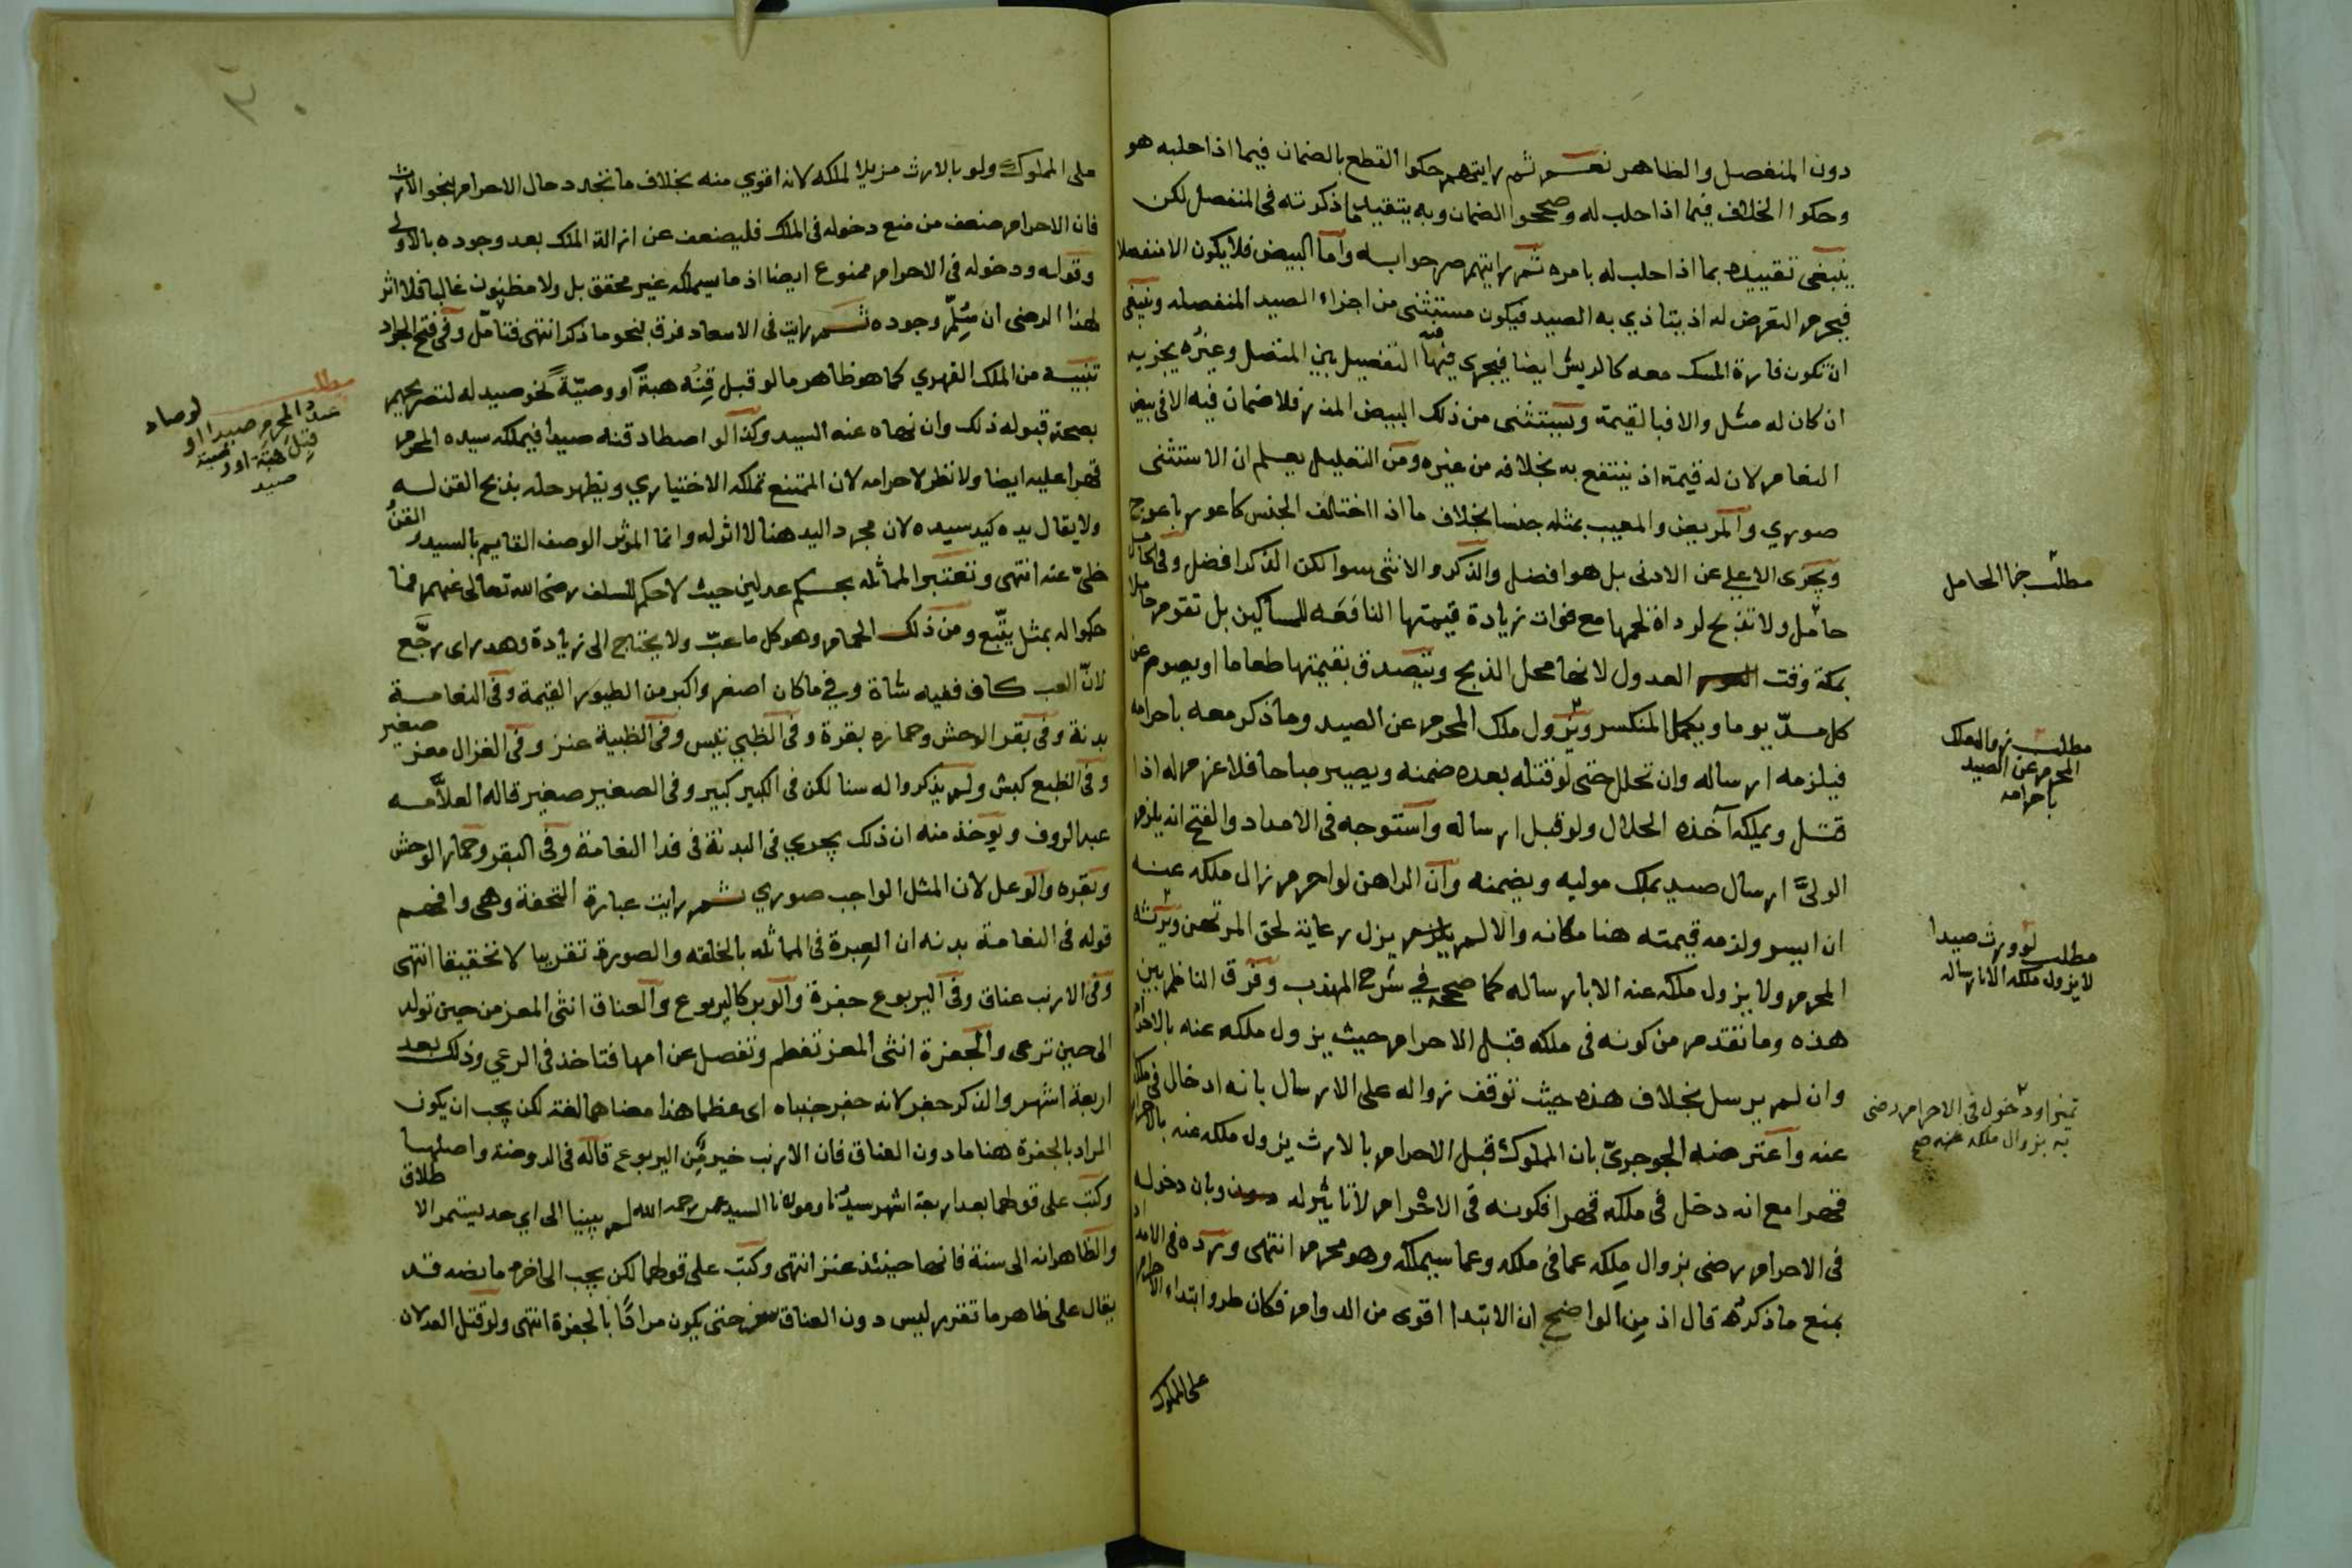 دون المنفصل والظاهر نعم ثم رايتهم حكوا القطع بالضمان فيما اذا حلبه هو
وحكوا الخلاف فيما اذا حلب له وصححوا الضمان وبه يتقيد ما ذكرته في المنفصل لكن
ينبغي تقييده بما اذا حلب له بامره ثم رايتهم صرحوا به واما البيض فلا يكون الا منفصلا
فيحرم التعرض له اذ يتاذي به الصيد فيكون مستثنى من اجزاء الصيد المنفصله وينبغي
ان تكون فارة المسك معه كالريش ايضا فيجري فيها التفصيل بين المتصل وغيره يجزيه
ان كان له مثل والا فبالقيمة ويستثنى من ذلك البيض المذر فلا ضمان فيه الا في بيض
النعام لان له قيمة اذ ينتفع به بخلافه من غيره ومن التعليل يعلم ان الاستثنى
صوري والمريض والمعيب بمثله جنسا بخلاف ما اذا اختلف الجنس كاعور باعوج
ويجزى الاعلى عن الادنى بل هو افضل والذكر والانثى سوا لكن الذكر افضل وفي الحامل
حامل ولا تذبح لرداة لحمها مع فوات زيادة قيمتها النافعه للمساكين بل تقوم حاملا
بمكة وقت العدول لانها محل الذبح ويتصدق بقيمتها طعاما او يصوم عن
كل مد يوما ويكمل المنكسر ويزول ملك المحرم عن الصيد وما ذكر معه باحرامه
فيلزمه ارساله وان تحلل حتى لو قتله بعده ضمنه ويصير مباحا فلا غرم له اذا
قتل ويملكه آخذه الحلال ولو قبل ارساله واستوجه في الامداد والفتح انه يلزم
الولي ارسال صيد بملك موليه ويضمنه وان الراهن لو احرم زال ملكه عنه
ان ايسر ولزمه قيمته هنا مكانه والا لم يزل رعاية لحق المرتهن ويرثه
المحرم ولا يزول ملكه عنه الا بارساله كما صححه في شرح المهذب وفرق الناظم بين
هذه وما تقدم من كونه في ملكه قبل الاحرام حيث يزول ملكه عنه بالاحرام
وان لم يرسل بخلاف هذه حيث توقف زواله على الارسال بانه ادخال في ملكه
عنه واعترضه الجوجري بان المملوك قبل الاحرام بالارث يزول ملكه عنه بالاحرام
قهرا مع انه دخل في ملكه قهرا فكونه في الاحرام لا تاثير له وبان دخوله
في الاحرام رضى بزوال ملكه عما في ملكه وعما سيملكه وهو محرم انتهى ورده في الامداد
بمنع ما ذكره قال اذ من الواضح ان الابتدا اقوى من الدوام فكان طروا ابتداء الاحرام
على المملوك
مطلب جزا الحامل
مطلب زوال ملك
المحرم عن الصيد
باحرامه
مطلب لو ورث صيدا
لا يزول ملكه الا بارساله
دخول في الاحرام رضى
به بزوال ملكه عنه صح
على المملوك ولو بالارث مزيلا لملكه لانه اقوي منه بخلاف ما تجدد حال الاحرام بنحو الارث
فان الاحرام ضعف من منع دخوله في الملك فليضعف عن ازالة الملك بعد وجوده بالاولى
وقوله ودخوله في الاحرام ممنوع ايضا اذ ما سيملكه غير محقق بل ولا مظنون غالبا فلا اثر
لهذا الرضى ان سلم وجوده ثم رايت في الاسعاد فرق بنحو ما ذكر انتهى فتامل وفي فتح الجواد
تنبيه من الملك القهري كما هو ظاهر ما لو قبل قنه هبة او وصية لنحو صيد له لتصريحهم
بصحة قبوله ذلك وان نهاه عنه السيد وكذا لو اصطاد قنه صيدا فيملكه سيده المحرم
قهرا عليه ايضا ولا نظر لاحرامه لان الممتنع تملكه الاختياري ويظهر حله بذبح القن له
ولا يقال يده كيد سيده لان مجرد اليد هنا لا اثر له وانما المؤثر الوصف القايم بالسيد والقن
خلي عنه انتهى وتعتبر المماثله بحكم عدلين حيث لا حكم للسلف رضي الله تعالى عنهم فما
حكموا له بمثل يتبع ومن ذلك الحمام وهو كل ما عب ولا يحتاج الى زيادة وهدر اى رجع
لان العب كاف ففيه شاة وفي ما كان اصغر واكبر من الطيور القيمة وفي النعامة
بدنة وفي بقر الوحش وحماره بقرة وفي الظبي تيس وفي الظبية عنز وفي الغزال معز صغير
وفي الضبع كبش ولم يذكروا له سنا لكن في الكبير كبير وفي الصغير صغير قاله العلامه
عبد الروف ويوخذ منه ان ذلك يجري في البدنة في فدا النعامة وفي البقر وحمار الوحش
وبقره والوعل لان المثل الواجب صوري ثم رايت عبارة التحفة وهي وافهم
قوله في النعامة بدنه ان العبرة في المماثله بالخلقه والصورة تقريبا لا تحقيقا انتهى
وفي الارنب عناق وفي اليربوع جفرة والوبر كاليربوع والعناق انثى المعز من حين تولد
الى حين ترعى والجفرة انثى المعز تفطم وتفصل عن امها فتاخذ في الرعي وذلك بعد
اربعة اشهر والذكر جفر لانه جفر جنباه اى عظما هذا معناهما لغة لكن يجب ان يكون
المراد بالجفرة هنا ما دون العناق فان الارنب خير من اليربوع قاله في الروضة واصلها
وكتب على قولهما بعد اربعة اشهر سيدنا ومولانا السيد عمر رحمه الله لم يبينا الى اي حد يستمر الاطلاق
والظاهر انه الى سنة فانها حينئذ عنز انتهى وكتب على قولهما لكن يجب الى اخره ما نصه قد
يقال على ظاهر ما تقرر ليس دون العناق حتى يكون مرادا بالجفرة انتهى ولو قتل العدلان
مطلب لو صاد
عبد المحرم صيدا او
قبل هبة او وصية
صيد